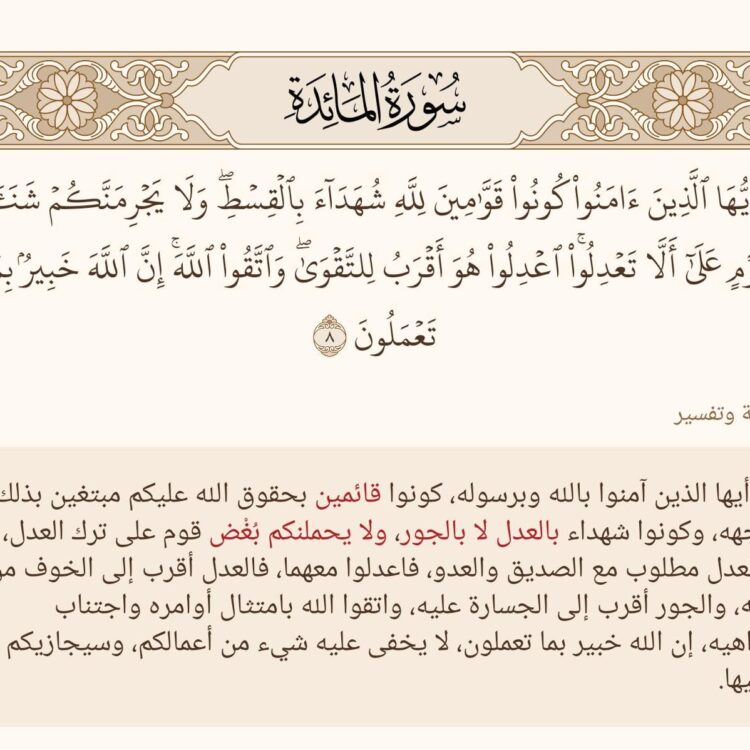 سُورَةُ المَائِدَةِ
ٱلَّذِينَ ءَامَنُوا۟ كُونُوا۟ قَوَّٰمِينَ لِلَّهِ شُهَدَآءَ بِٱلْقِسْطِ ۖ وَلَا يَجْرِمَنَّكُمْ
عَلَىٰٓ أَلَّا تَعْدِلُوا۟ ۚ ٱعْدِلُوا۟ هُوَ أَقْرَبُ لِلتَّقْوَىٰ ۖ وَٱتَّقُوا۟ ٱللَّهَ ۚ إِنَّ ٱللَّهَ خَبِيرٌۢ
تَعْمَلُونَ ٨
وتفسير
أيها الذين آمنوا بالله وبرسوله، كونوا قائمين بحقوق الله عليكم مبتغين بذلك
وكونوا شهداء بالعدل لا بالجور، ولا يحملنكم بُغْض قوم على ترك العدل،
مطلوب مع الصديق والعدو، فاعدلوا معهما، فالعدل أقرب إلى الخوف
والجور أقرب إلى الجسارة عليه، واتقوا الله بامتثال أوامره واجتناب
إن الله خبير بما تعملون، لا يخفى عليه شيء من أعمالكم، وسيجازيكم